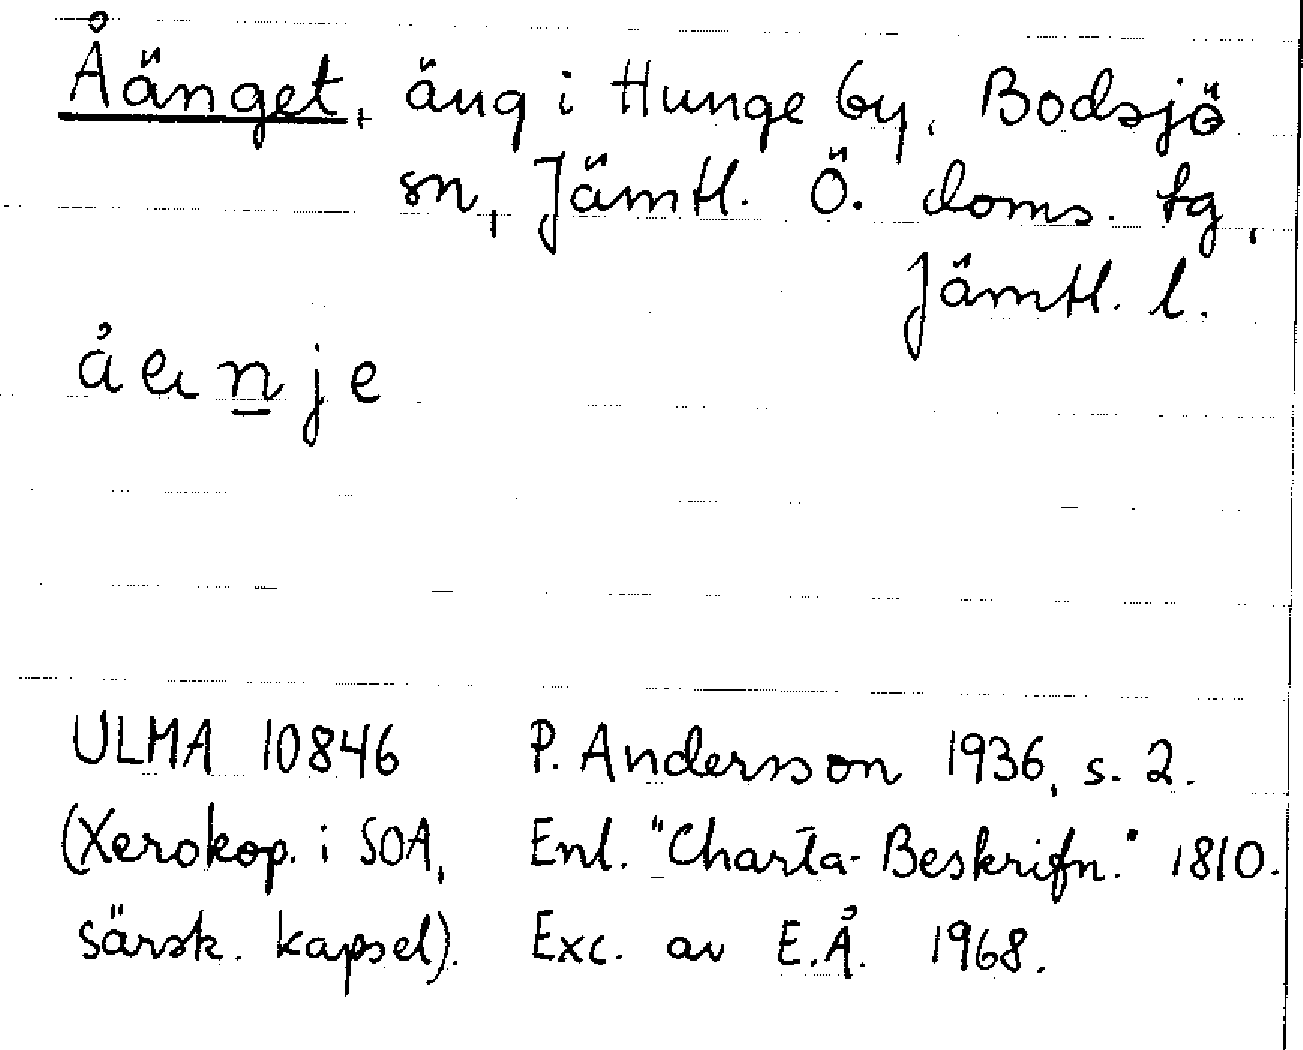 Åänget, äng i Hunge by, Bodsjö
sn, Jämtl. Ö. doms. tg,
Jämtl. l.
åenje
ULMA 10846 P. Andersson 1936, s. 2.
(Xerokop. i SOA, Enl. "Charta-Beskrifn." 1810.
särsk. kapsel). Exc. av E.Å. 1968.